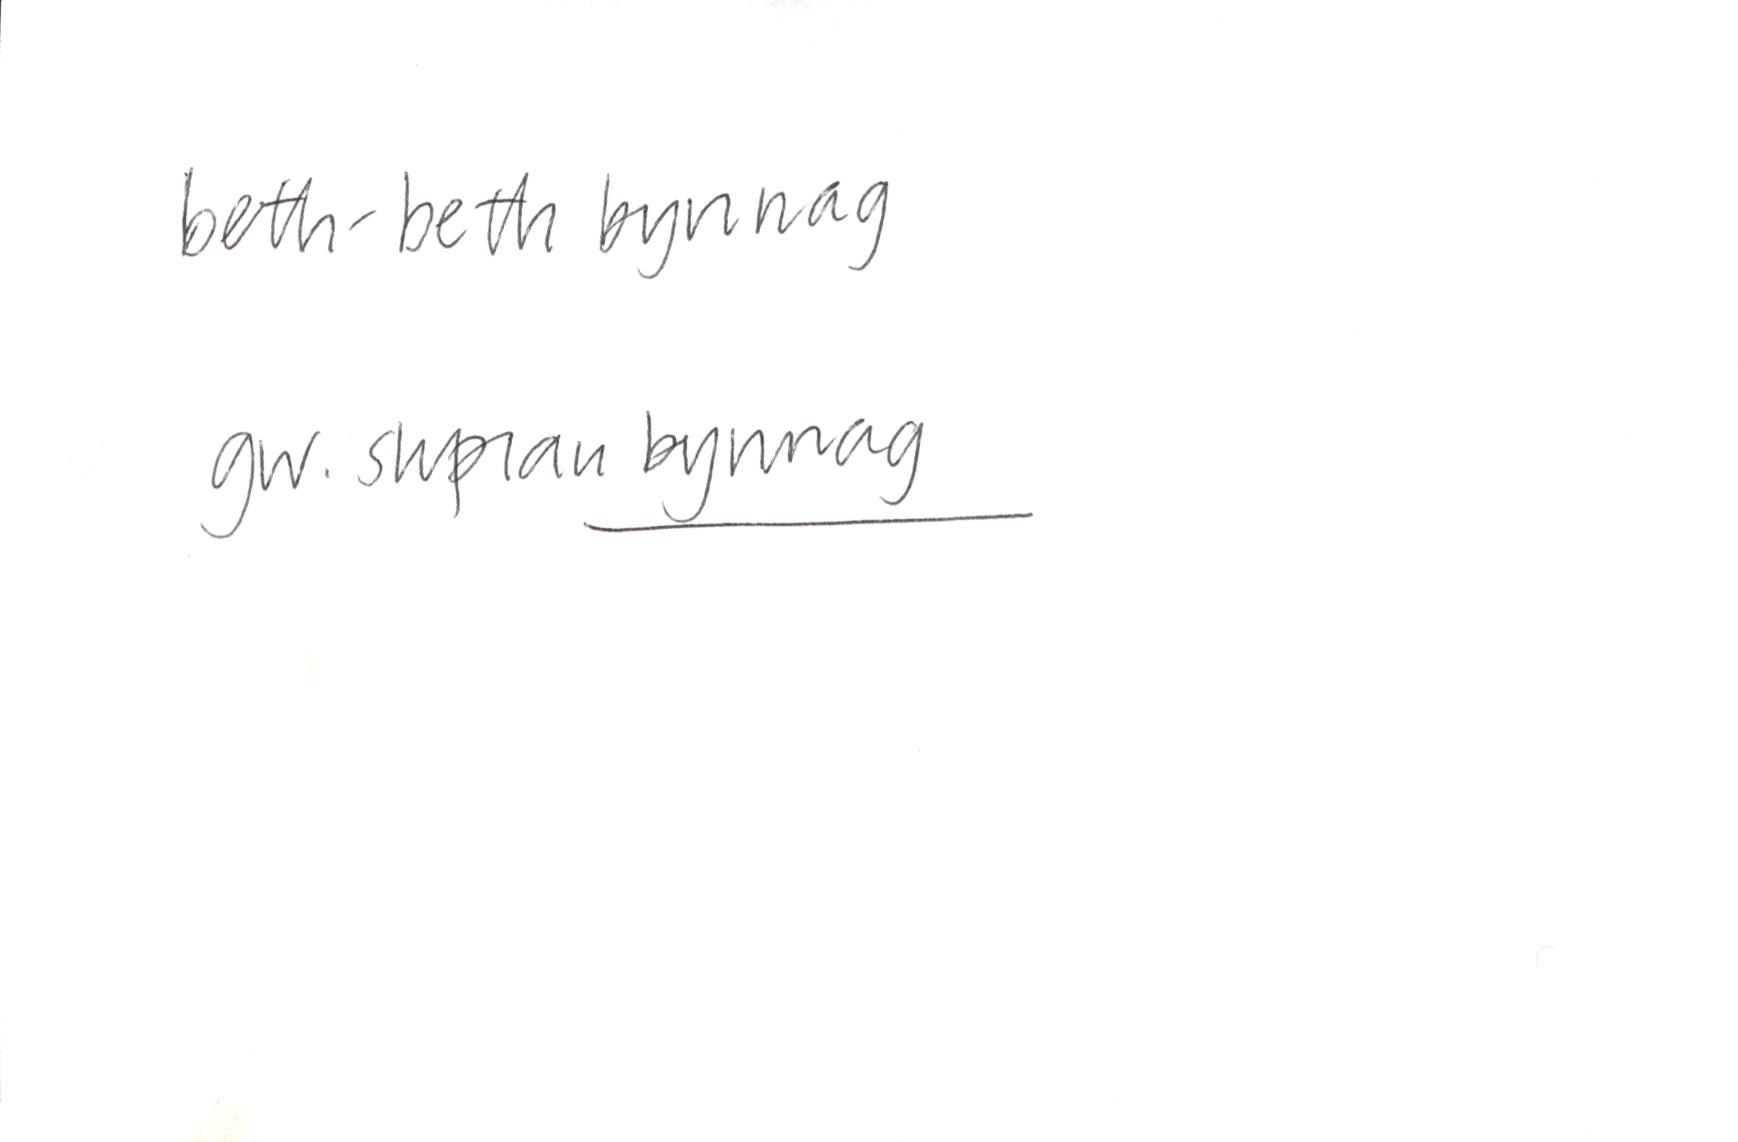 beth-beth bynnag
gw. slipiau bynnag